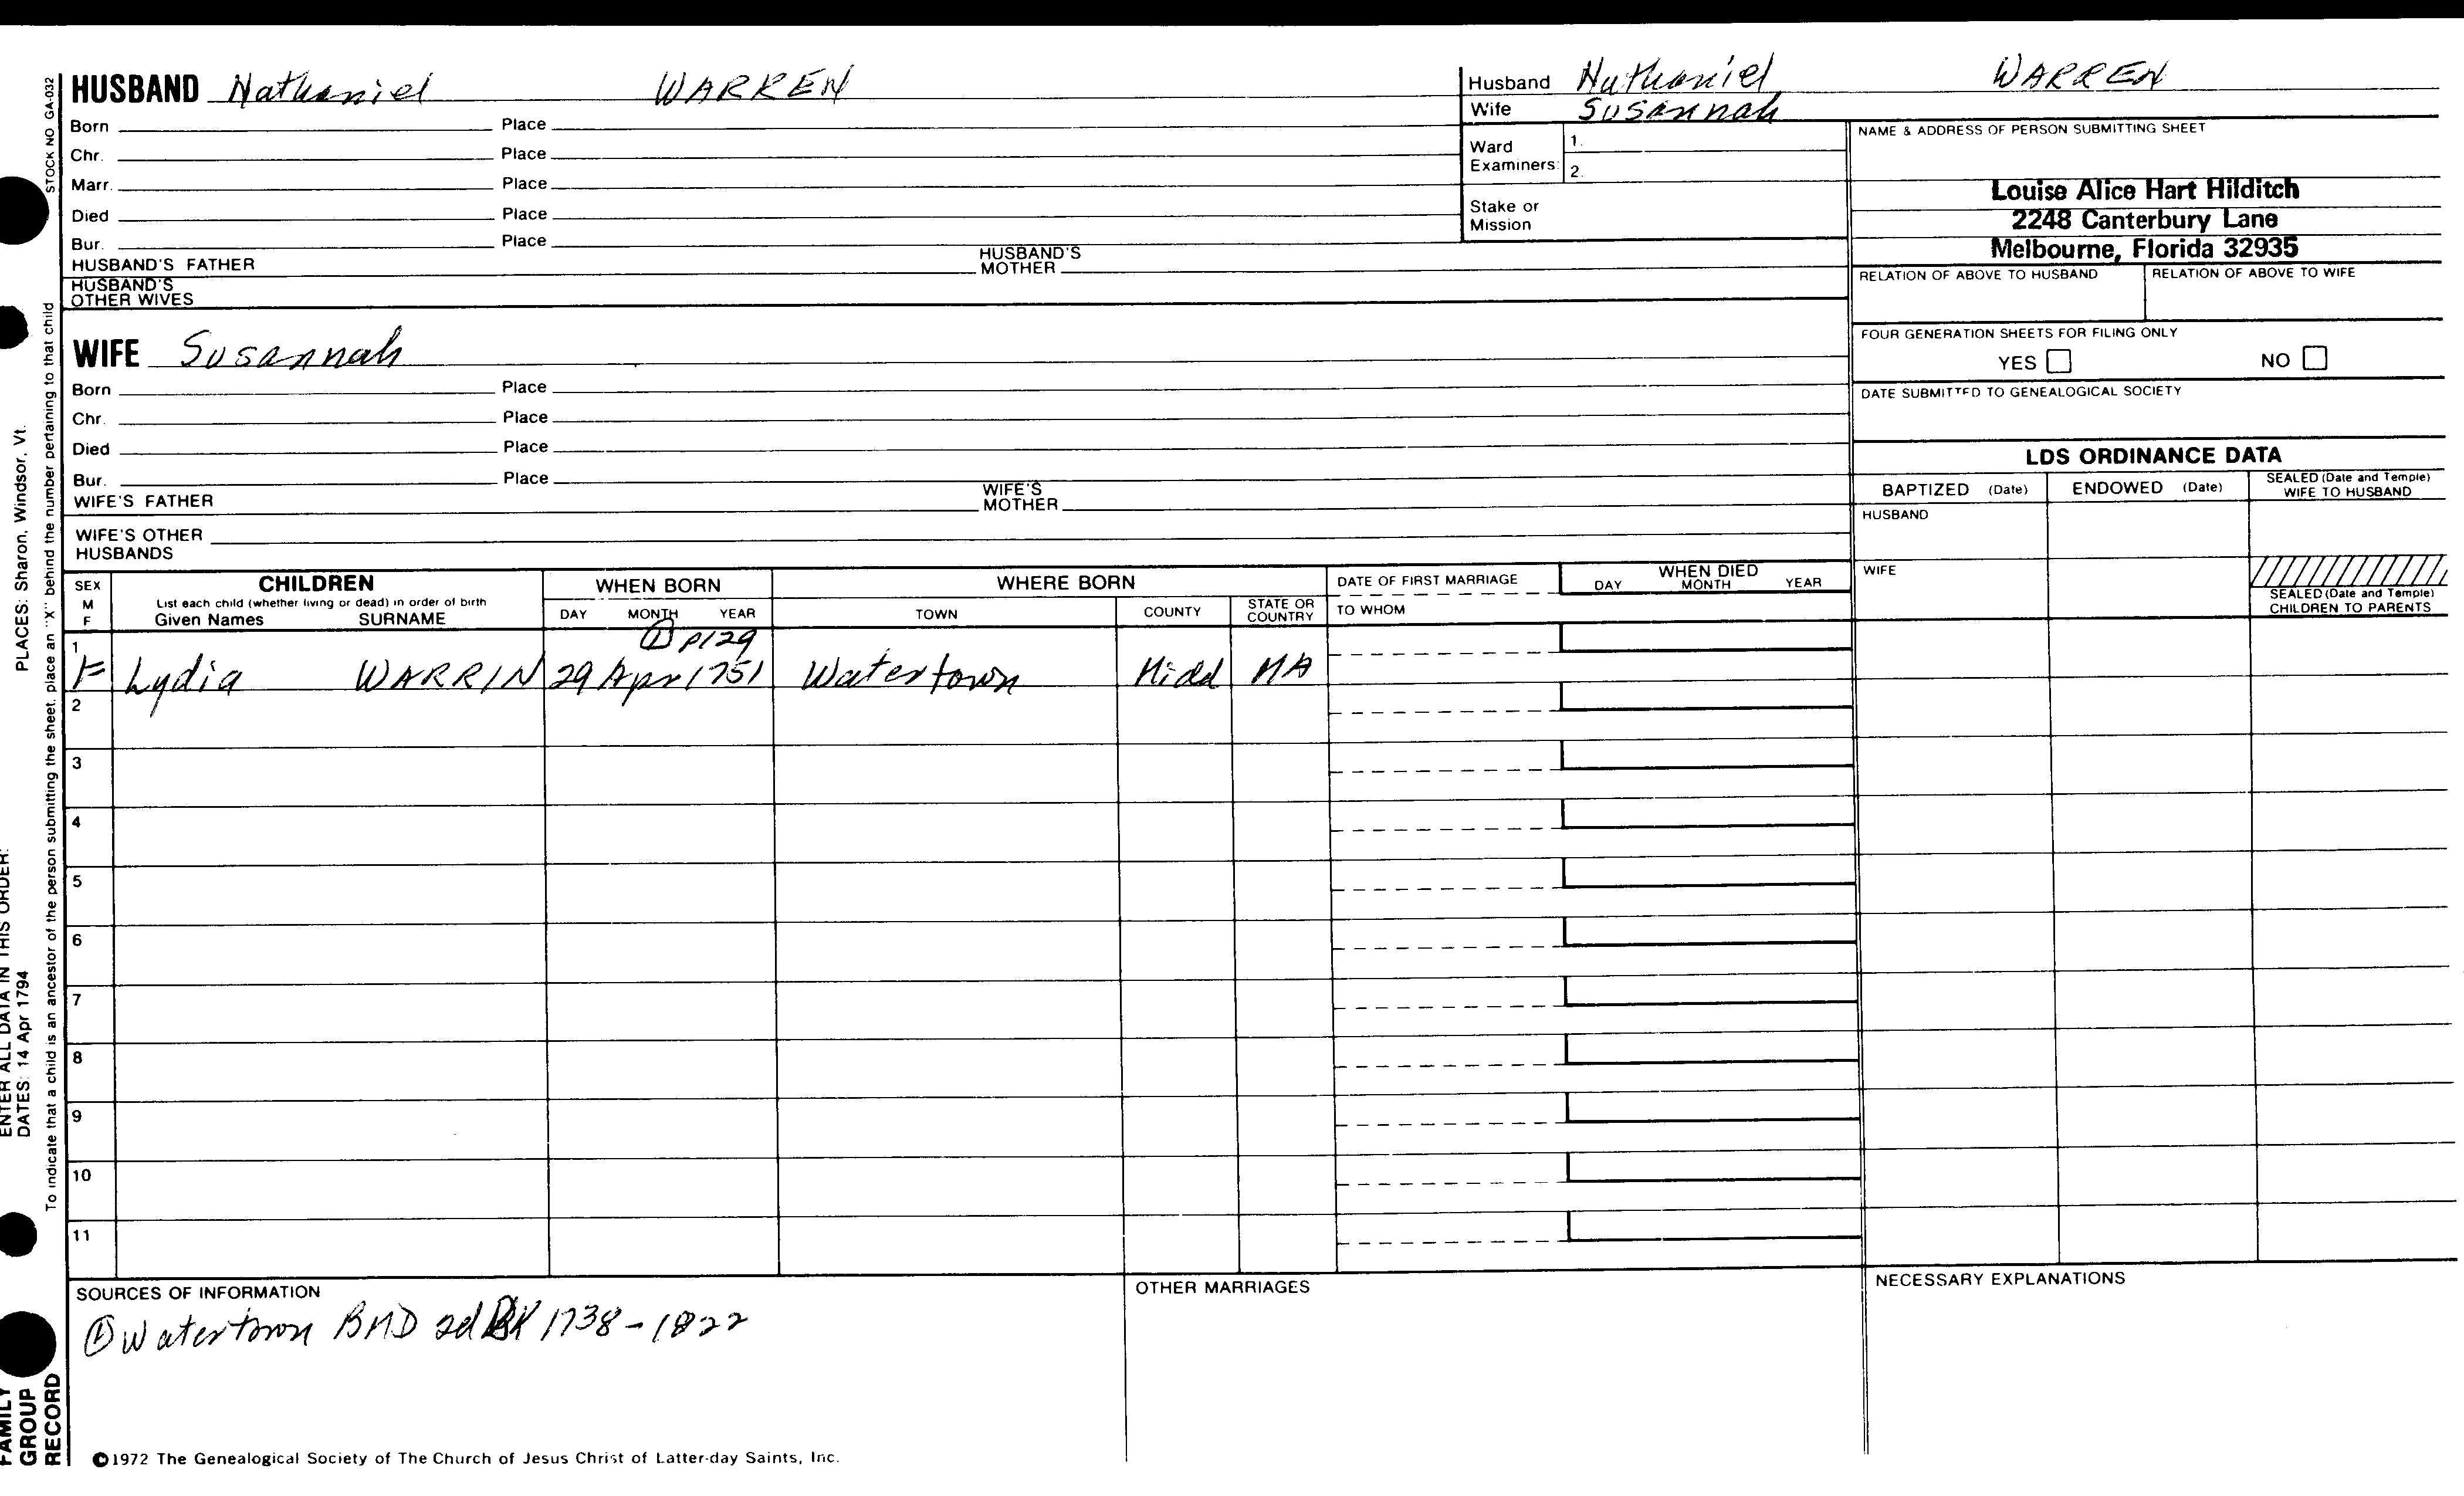 HUSBAND Nathaniel WARREN
Born Place
Chr. Place
Marr. Place
Died Place
Bur. Place
HUSBAND'S FATHER HUSBAND'S MOTHER
HUSBAND'S OTHER WIVES
WIFE Susannah
Born Place
Chr. Place
Died Place
Bur. Place
WIFE'S FATHER WIFE'S MOTHER
WIFE'S OTHER HUSBANDS
Husband Nathaniel WARREN
Wife Susannah
Ward Examiners: 1.
2.
Stake or Mission
NAME & ADDRESS OF PERSON SUBMITTING SHEET
Louise Alice Hart Hilditch
2248 Canterbury Lane
Melbourne, Florida 32935
RELATION OF ABOVE TO HUSBAND RELATION OF ABOVE TO WIFE
FOUR GENERATION SHEETS FOR FILING ONLY
YES NO
DATE SUBMITTED TO GENEALOGICAL SOCIETY
LDS ORDINANCE DATA
BAPTIZED (Date) ENDOWED (Date) SEALED (Date and Temple) WIFE TO HUSBAND
HUSBAND
WIFE
SEALED (Date and Temple) CHILDREN TO PARENTS
SEX M F
CHILDREN
List each child (whether living or dead) in order of birth
Given Names SURNAME
WHEN BORN
DAY MONTH YEAR
WHERE BORN
TOWN COUNTY STATE OR COUNTRY
DATE OF FIRST MARRIAGE
TO WHOM
WHEN DIED
DAY MONTH YEAR
① p129
1 F Lydia WARRIN 29 Apr 1751 Watertown Midd MA
2
3
4
5
6
7
8
9
10
11
SOURCES OF INFORMATION
① Watertown BMD 2d BK 1738-1822
OTHER MARRIAGES
NECESSARY EXPLANATIONS
©1972 The Genealogical Society of The Church of Jesus Christ of Latter-day Saints, Inc.
STOCK NO GA-032
To indicate that a child is an ancestor of the person submitting the sheet, place an "X" behind the number pertaining to that child
PLACES: Sharon, Windsor, Vt.
ENTER ALL DATA IN THIS ORDER:
DATES: 14 Apr 1794
FAMILY
GROUP
RECORD